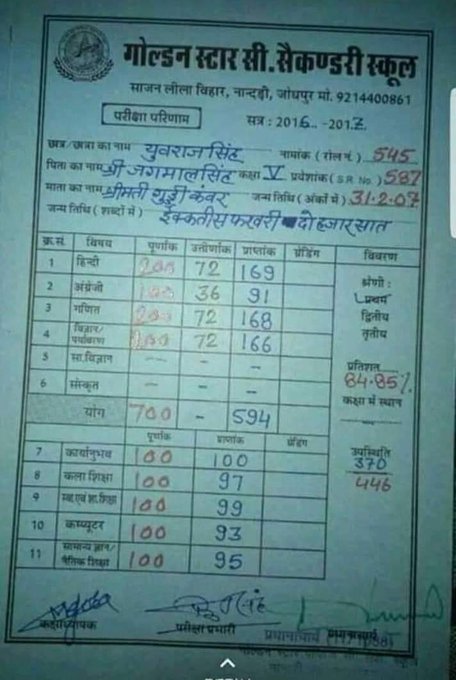 गोल्डन स्टार सी. सैकण्डरी स्कूल
साजन लीला विहार, नान्दड़ी, जोधपुर मो. 9214400861
परीक्षा परिणाम सत्र : 2016 -2017
छात्र / छात्रा का नाम युवराज सिंह नामांक ( रोल नं. ) 545
पिता का नाम श्री जगमाल सिंह कक्षा V प्रवेशांक ( S.R. No. ) 587
माता का नाम श्रीमती गुड्डी कंवर जन्म तिथि ( अंकों में ) 31.2.07
जन्म तिथि ( शब्दों में ) ईक्कतीस फरवरी दो हजार सात
क्र.सं. विषय पूर्णांक उत्तीर्णांक प्राप्तांक ग्रेडिंग विवरण
1 हिन्दी 200 72 169
2 अंग्रेजी 100 36 91
3 गणित 200 72 168
4 विज्ञान/पर्यावरण 200 72 166
5 सा.विज्ञान -- - --
6 संस्कृत - - -
योग 700 - 594
श्रेणी :
प्रथम
द्वितीय
तृतीय
प्रतिशत
84.85%
कक्षा में स्थान
पूर्णांक प्राप्तांक ग्रेडिंग
7 कार्यानुभव 100 100
8 कला शिक्षा 100 97
9 स्वा.एवं शा.शिक्षा 100 99
10 कम्प्यूटर 100 93
11 सामान्य ज्ञान/नैतिक शिक्षा 100 95
उपस्थिति
370
446
कक्षाध्यापक परीक्षा प्रभारी प्रधानाचार्य